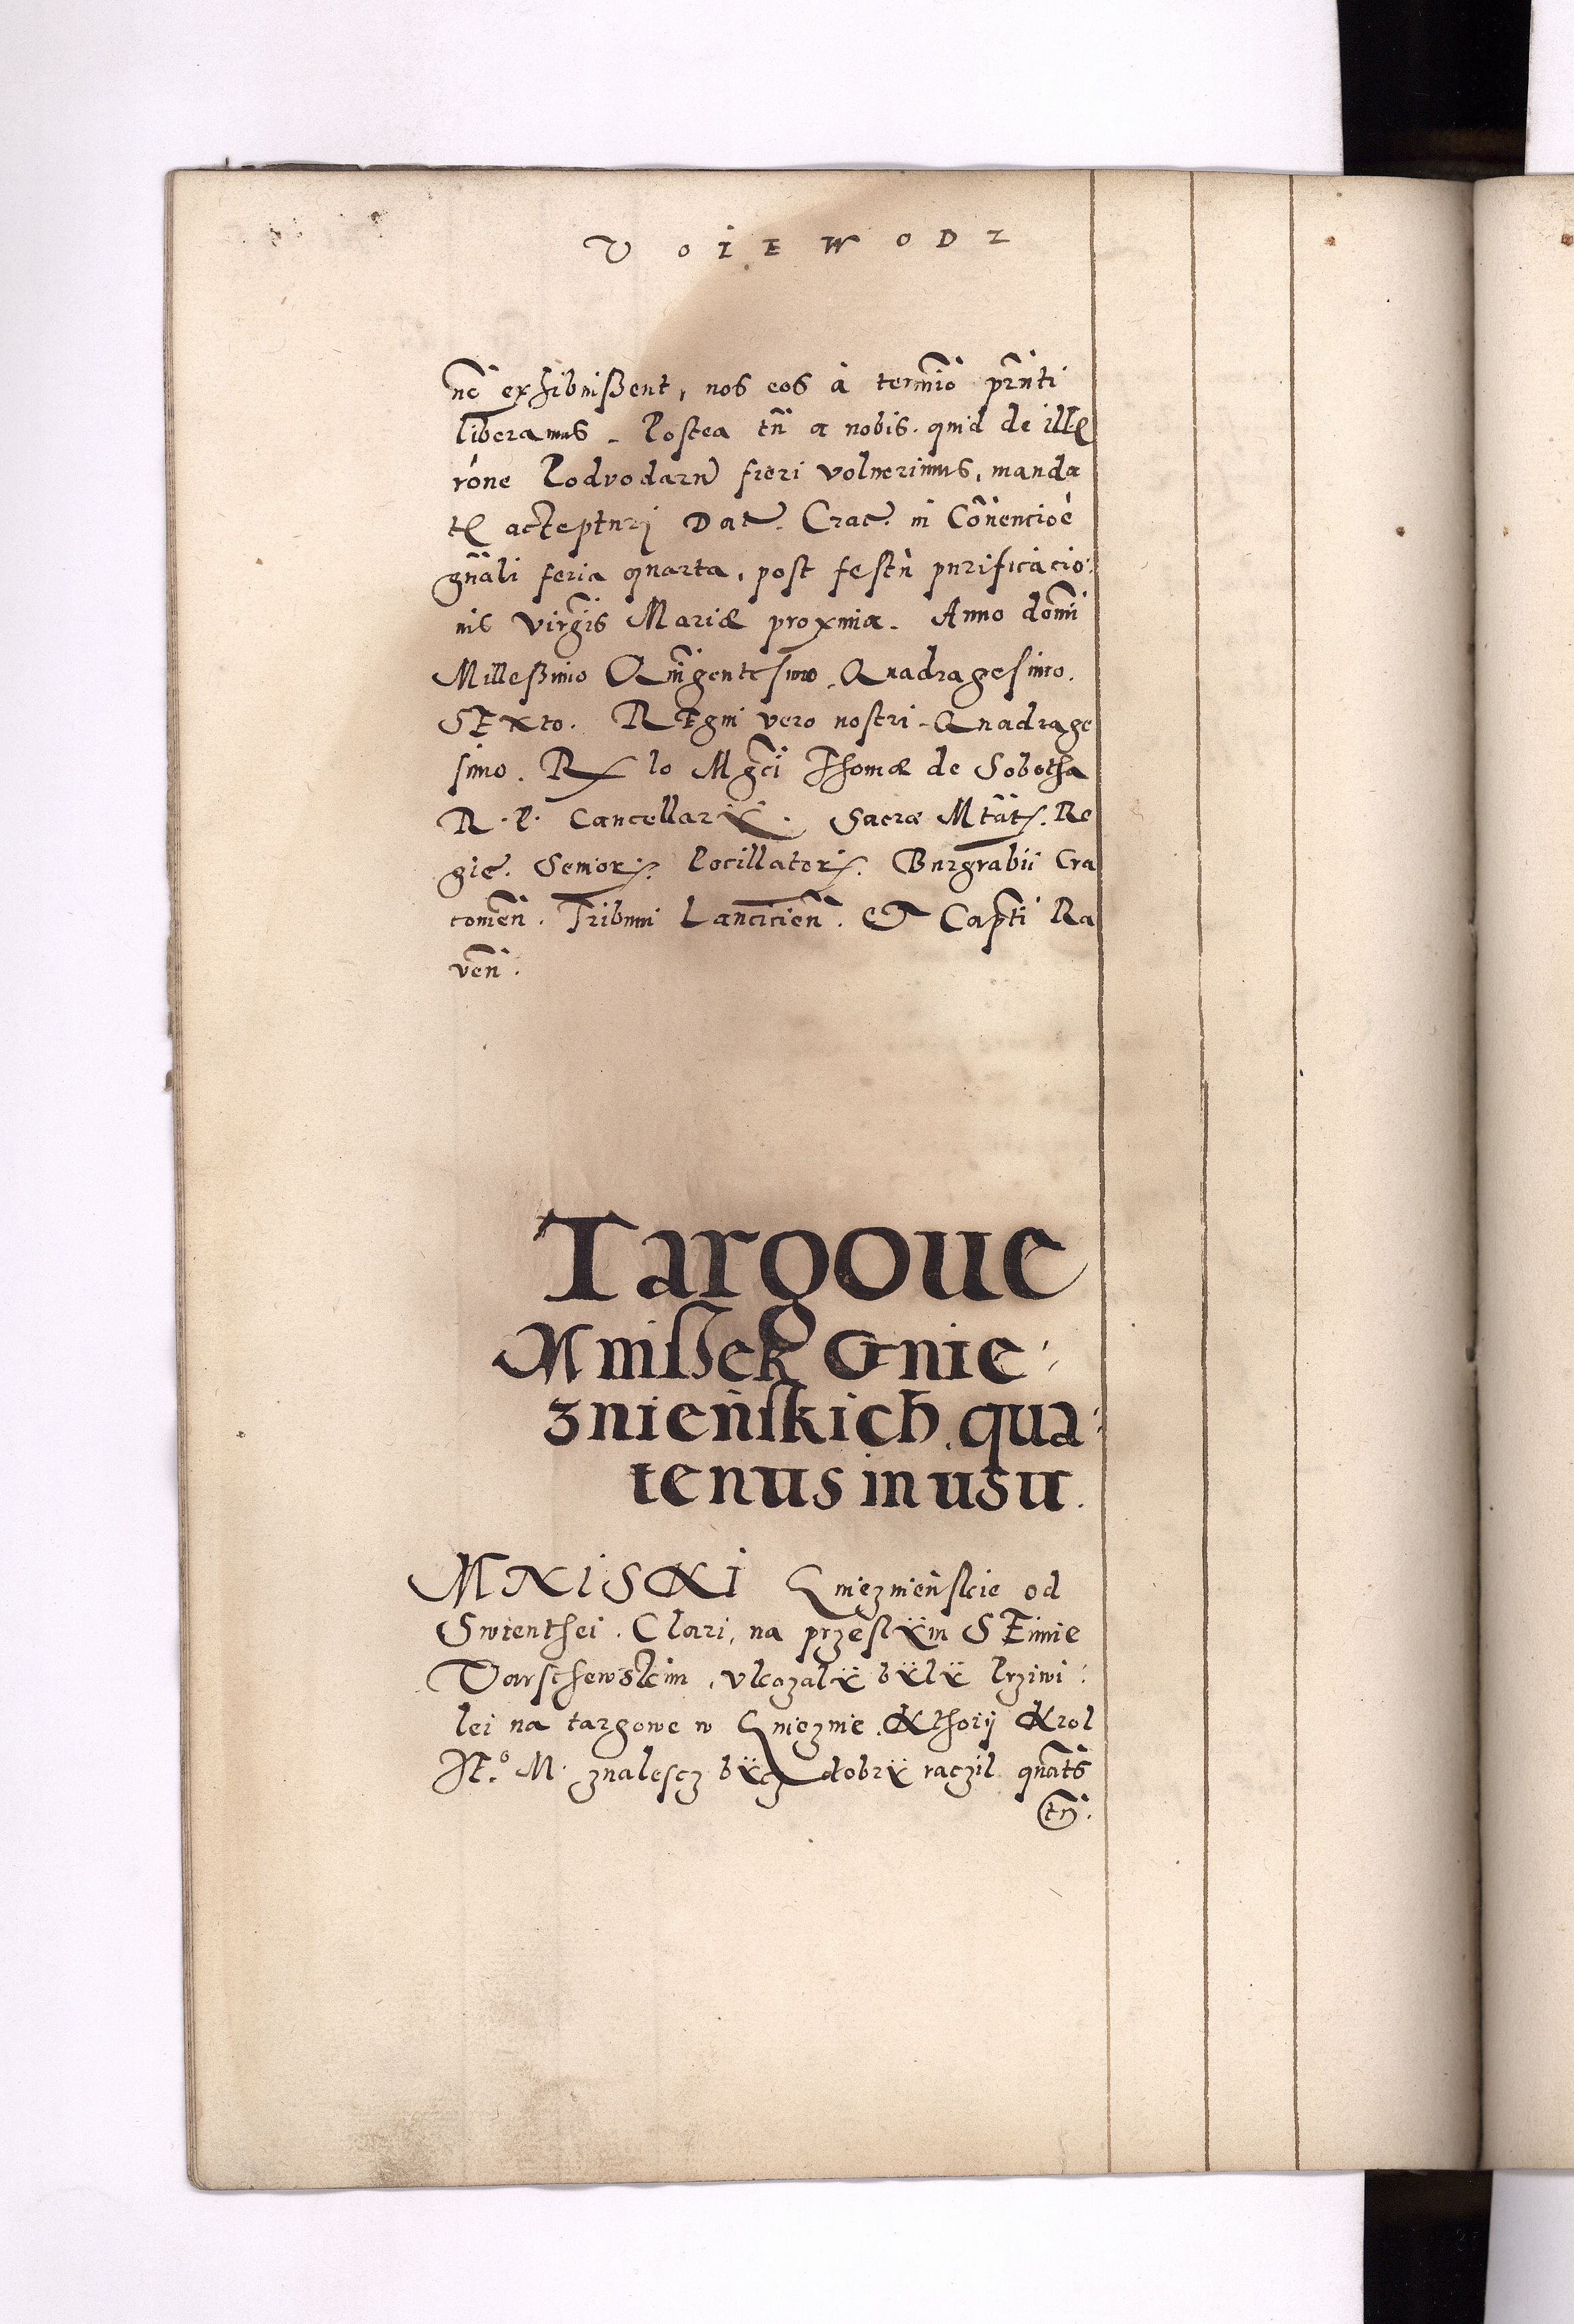 VOIEWODZ
nē exhibuißent, nos eos à termīo pr̄nti
liberamus. Postea tn̄ a nobis. quid de illꝭ
rōne Podvodarū fieri voluerimus, manda
tꝭ accepturi Dat. Crac. in Con̄encioē
gn̄ali feria quarta, post festū purificacio:
nis virḡis Mariæ proxima. Anno dom̄i
Milleßimo Quīgentesimo Quadragesimo.
SExto. REgni vero nostri Quadrage
simo. Rx lo Mgc̄i Thomæ de Sobotha
R. P. Cancellarij. Sacræ Mtātis. Re
gie. Semoris. Pocillatoris. Burgrabii Cra
couien̄. Tribuni Lancicien̄. ET Capt̄i Ra
ven̄.
Targoue
Mnissek Gnie:
znieńskich qua:
tenus in usu.
MNISKI Gnieznieńskie od
Swienthei. Clari, na przeslÿm SEimie
Varschewskim, vkazalÿ bÿlÿ Przÿwi:
lei na targowe w Gnieznie. Kthorÿ Krol
JE.º M. znalescz bÿcz dobrÿ raczil qnāts
tn̄.